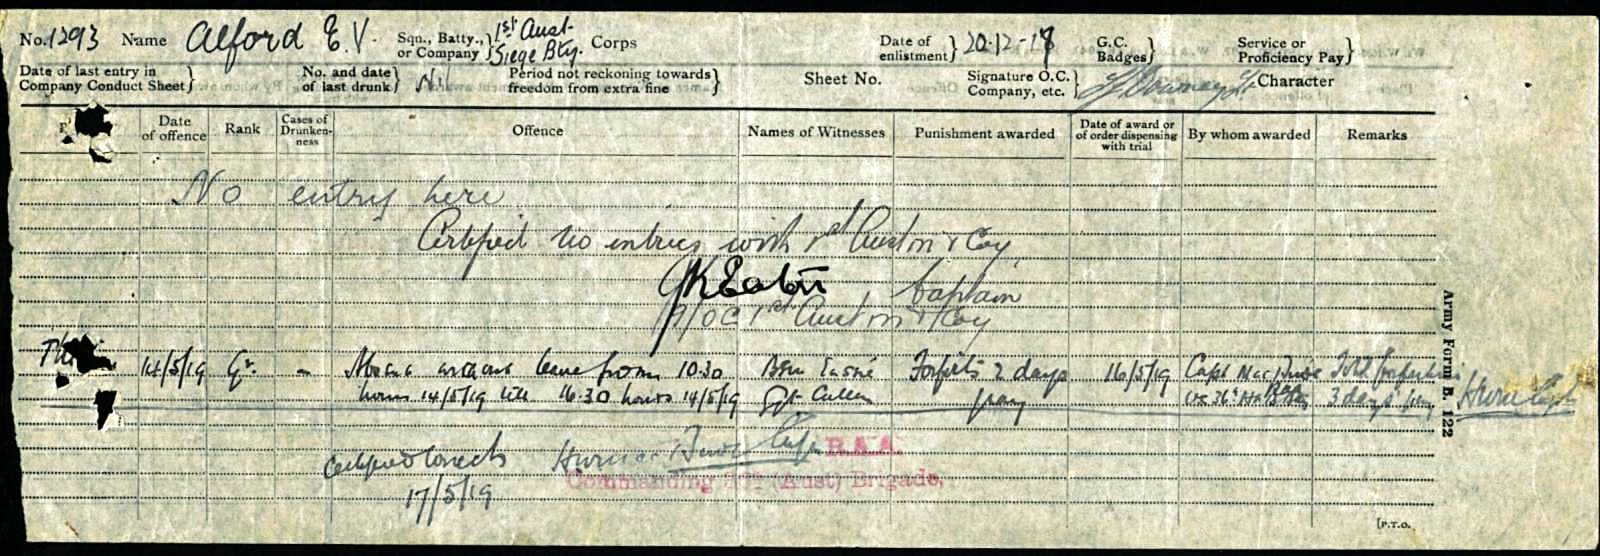 No. 1293 Name Alford E.V. Sqn., Batty., or Company } 1st Aust. Siege Bty. Corps Date of enlistment } 20.12.17 G.C. Badges } Service or Proficiency Pay }
Date of last entry in Company Conduct Sheet } No. and date of last drunk } Nil Period not reckoning towards freedom from extra fine } Sheet No. Signature O.C. Company, etc. } Character
Date of offence Rank Cases of Drunkenness Offence Names of Witnesses Punishment awarded Date of award or of order dispensing with trial By whom awarded Remarks
No entry here
Certified no entries with 1st Coy
JK Eaton Captain
OC 1st Coy
14/5/19 Gr. – without leave from 10.30 Forfeits 2 days 16/5/19 Capt Total
hours 14/5/19 till 16.30 hours 14/5/19 Sgt Cullen pay 3 days pay
Certified correct R.A.A.
17/5/19 Commanding (Aust) Brigade.
Army Form B. 122
[P.T.O.